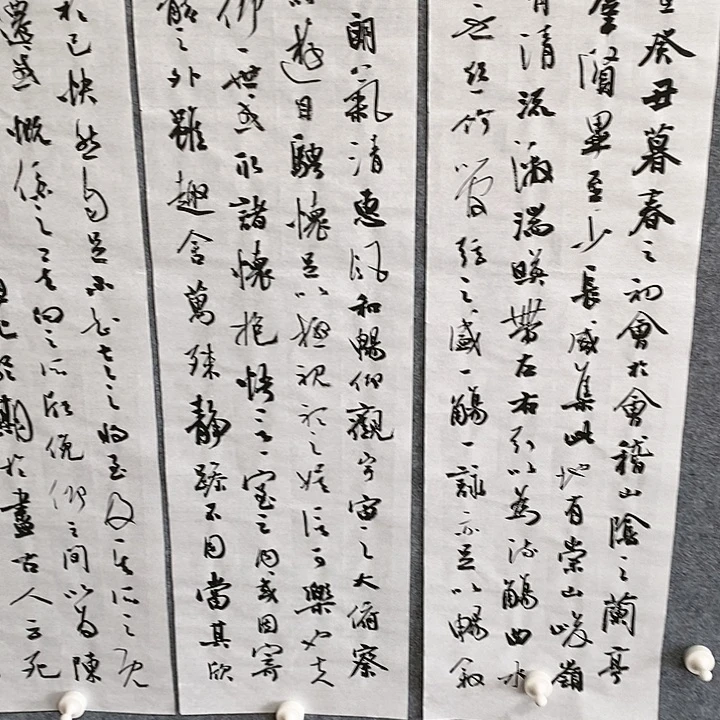 癸丑暮春之初會於會稽山陰之蘭亭
羣賢畢至少長咸集此地有崇山峻嶺
有清流激湍暎帶左右引以為流觴曲水
無絲竹管弦之盛一觴一詠亦足以暢敘
朗氣清惠風和暢仰觀宇宙之大俯察
遊目騁懷足以極視聽之娛信可樂也夫
仰一世或取諸懷抱悟言一室之內或因寄
骸之外雖趣舍萬殊靜躁不同當其欣
於己快然自足不知老之將至及其所之既
遷感慨係之矣向之所欣俛仰之間以為陳
化終期於盡古人云死